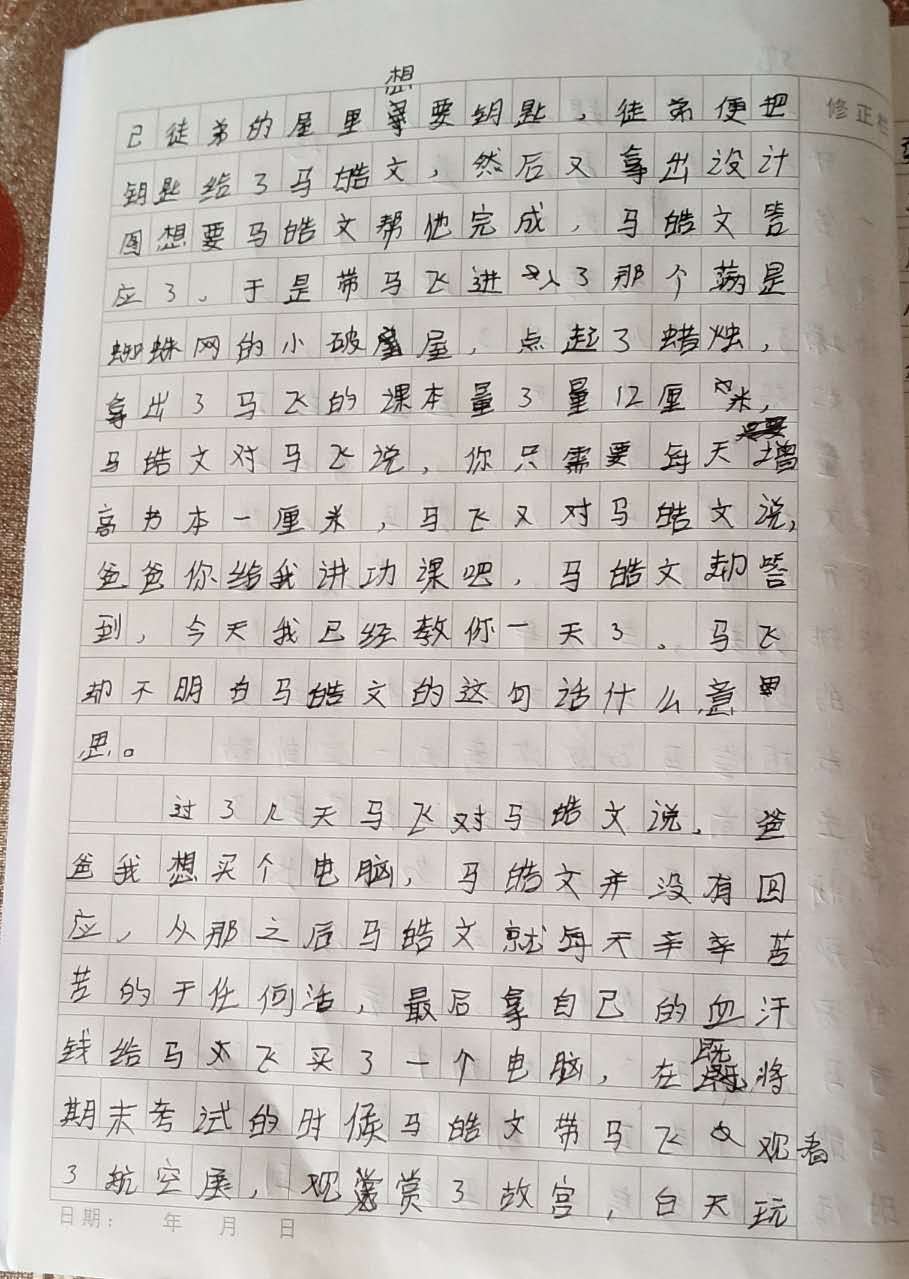 想
己徒弟的屋里要钥匙，徒弟便把
修正栏
钥匙给了马皓文，然后又拿出设计
图想要马皓文帮他完成，马皓文答
应了。于是带马飞进入了那个满是
蜘蛛网的小破屋，点起了蜡烛，
拿出了马飞的课本量了量12厘米，
马皓文对马飞说，你只需要每天增
高书本一厘米，马飞又对马皓文说，
爸爸你给我讲功课吧，马皓文却答
到，今天我已经教你一天了。马飞
却不明白马皓文的这句话什么意
思。
过了几天马飞对马皓文说，爸
爸我想买个电脑，马皓文并没有回
应，从那之后马皓文就每天辛辛苦
苦的干任何活，最后拿自己的血汗
钱给马飞买了一个电脑，在既将
期末考试的时候马皓文带马飞观看
了航空展，观赏了故宫，白天玩
日期： 年 月 日